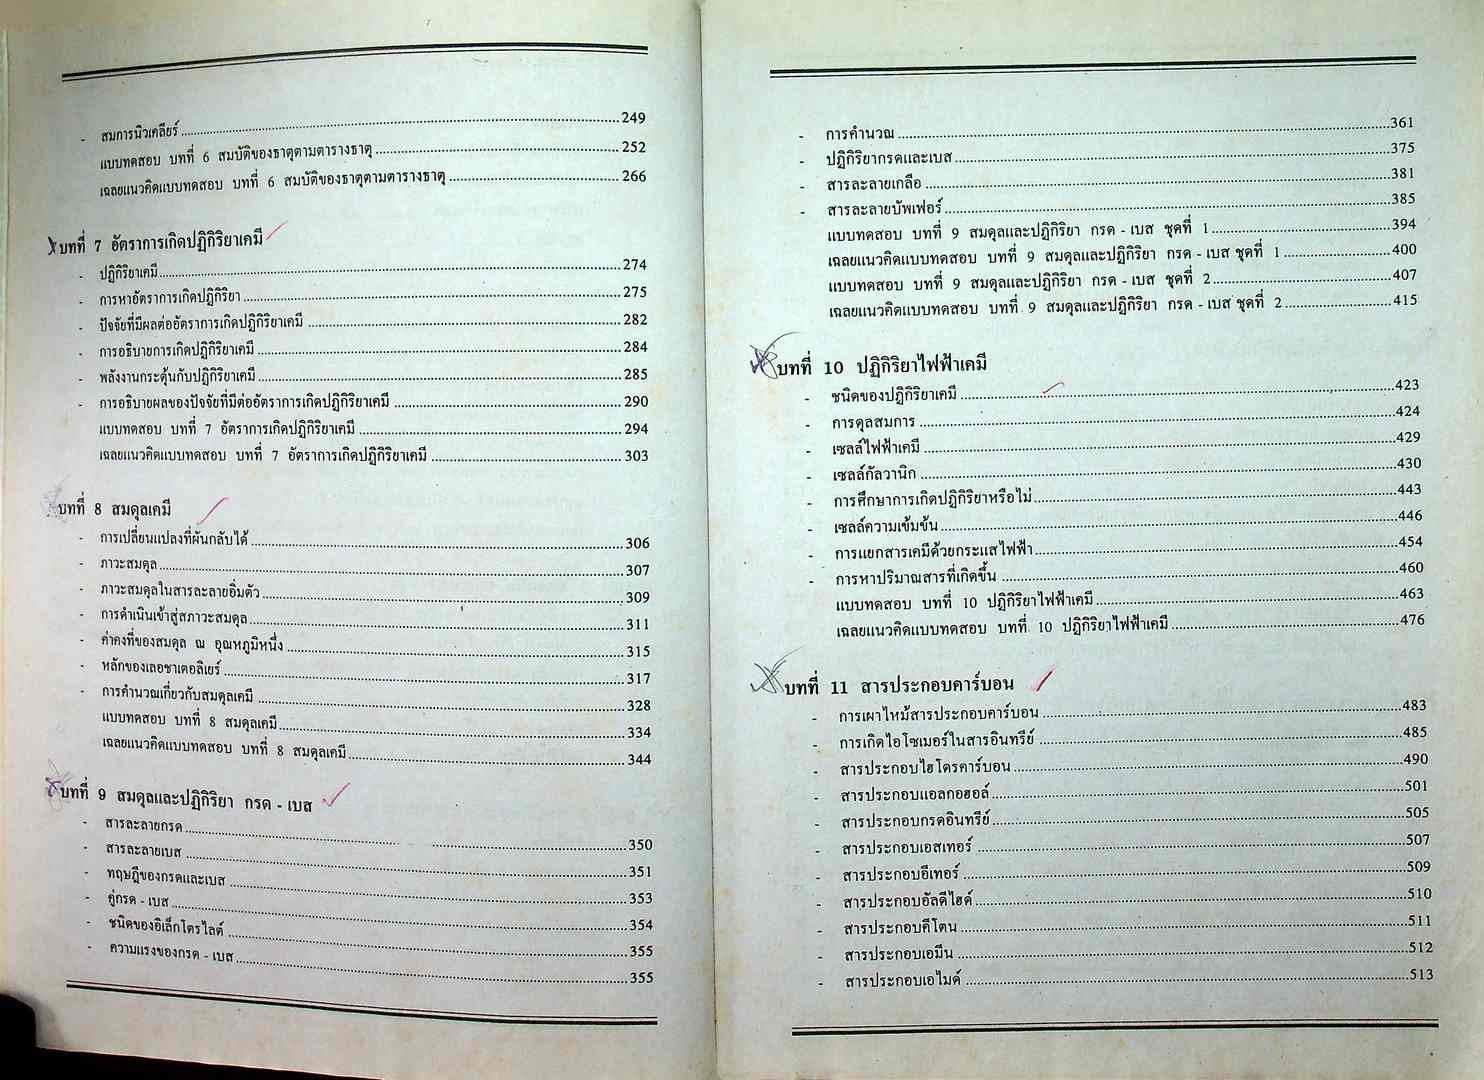 - สมการนิวเคลียร์ 249
แบบทดสอบ บทที่ 6 สมบัติของธาตุตามตารางธาตุ 252
เฉลยแนวคิดแบบทดสอบ บทที่ 6 สมบัติของธาตุตามตารางธาตุ 266
บทที่ 7 อัตราการเกิดปฏิกิริยาเคมี
- ปฏิกิริยาเคมี 274
- การหาอัตราการเกิดปฏิกิริยา 275
- ปัจจัยที่มีผลต่ออัตราการเกิดปฏิกิริยาเคมี 282
- การอธิบายการเกิดปฏิกิริยาเคมี 284
- พลังงานกระตุ้นกับปฏิกิริยาเคมี 285
- การอธิบายผลของปัจจัยที่มีต่ออัตราการเกิดปฏิกิริยาเคมี 290
แบบทดสอบ บทที่ 7 อัตราการเกิดปฏิกิริยาเคมี 294
เฉลยแนวคิดแบบทดสอบ บทที่ 7 อัตราการเกิดปฏิกิริยาเคมี 303
บทที่ 8 สมดุลเคมี
- การเปลี่ยนแปลงที่ผันกลับได้ 306
- ภาวะสมดุล 307
- ภาวะสมดุลในสารละลายอิ่มตัว 309
- การดำเนินเข้าสู่สภาวะสมดุล 311
- ค่าคงที่ของสมดุล ณ อุณหภูมิหนึ่ง 315
- หลักของเลอชาเตอลิเยร์ 317
- การคำนวณเกี่ยวกับสมดุลเคมี 328
แบบทดสอบ บทที่ 8 สมดุลเคมี 334
เฉลยแนวคิดแบบทดสอบ บทที่ 8 สมดุลเคมี 344
บทที่ 9 สมดุลและปฏิกิริยา กรด - เบส
- สารละลายกรด 350
- สารละลายเบส 351
- ทฤษฎีของกรดและเบส 353
- คู่กรด - เบส 354
- ชนิดของอิเล็กโตรไลต์ 355
- ความแรงของกรด - เบส 355
- การคำนวณ 361
- ปฏิกิริยากรดและเบส 375
- สารละลายเกลือ 381
- สารละลายบัพเฟอร์ 385
แบบทดสอบ บทที่ 9 สมดุลและปฏิกิริยา กรด - เบส ชุดที่ 1 394
เฉลยแนวคิดแบบทดสอบ บทที่ 9 สมดุลและปฏิกิริยา กรด - เบส ชุดที่ 1 400
แบบทดสอบ บทที่ 9 สมดุลและปฏิกิริยา กรด - เบส ชุดที่ 2 407
เฉลยแนวคิดแบบทดสอบ บทที่ 9 สมดุลและปฏิกิริยา กรด - เบส ชุดที่ 2 415
บทที่ 10 ปฏิกิริยาไฟฟ้าเคมี
- ชนิดของปฏิกิริยาเคมี 423
- การดุลสมการ 424
- เซลล์ไฟฟ้าเคมี 429
- เซลล์กัลวานิก 430
- การศึกษาการเกิดปฏิกิริยาหรือไม่ 443
- เซลล์ความเข้มข้น 446
- การแยกสารเคมีด้วยกระแสไฟฟ้า 454
- การหาปริมาณสารที่เกิดขึ้น 460
แบบทดสอบ บทที่ 10 ปฏิกิริยาไฟฟ้าเคมี 463
เฉลยแนวคิดแบบทดสอบ บทที่ 10 ปฏิกิริยาไฟฟ้าเคมี 476
บทที่ 11 สารประกอบคาร์บอน
- การเผาไหม้สารประกอบคาร์บอน 483
- การเกิดไอโซเมอร์ในสารอินทรีย์ 485
- สารประกอบไฮโดรคาร์บอน 490
- สารประกอบแอลกอฮอล์ 501
- สารประกอบกรดอินทรีย์ 505
- สารประกอบเอสเทอร์ 507
- สารประกอบอีเทอร์ 509
- สารประกอบอัลดีไฮด์ 510
- สารประกอบคีโตน 511
- สารประกอบเอมีน 512
- สารประกอบเอไมด์ 513